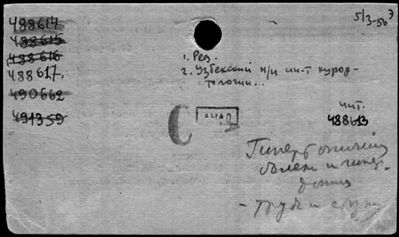 488614
488615
488616
488617.
490662
491359
5/3-56
1. Рез.
2. Узбекский н/и ин-т курор-
тологии...
инт.
488613
С
Гипертонич
болезнь и гипер
тония
- труды